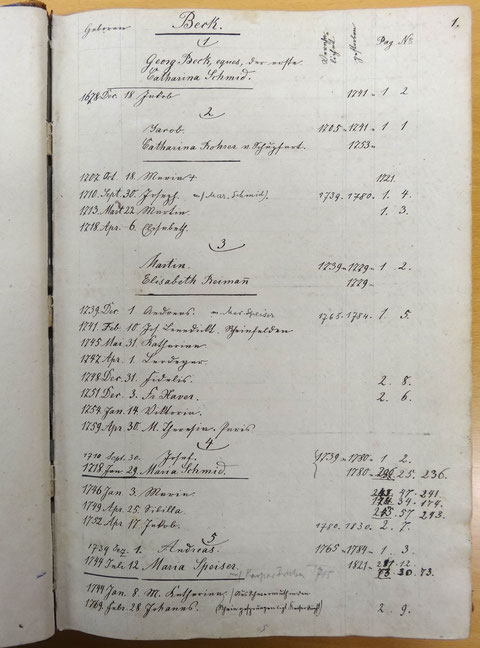 Geboren Beck. Verehelicht gestorben Pag. No. 1.
1
Georg Beck, eques, der erste
Catharina Schmid.
1678 Dec 18 Jakob 1741 - 1 2
2
Jacob. 1705 - 1741 - 1 1
Catharina Rohrer v. Schupfart. 1753 -
1707 Oct. 18. Maria + 1721.
1710. Sept. 30. Joseph. m/ Mar. Schmid). 1739. 1780. 1. 4.
1713. Mart 22 Martin 1. 3.
1718 Apr. 6. Elisabeth.
3
Martin. 1739 - 1779 - 1 2.
Elisabeth Reimann 1779 -
1739 Dec 1 Andreas m/ Mar Speiser 1765 - 1784 - 1. 5.
1741 Feb 10 Jos Benedickt. Rheinfelden
1745 Mar. 31. Katharina
1747 Apr. 1. Leodegar.
1748 Dec. 31. Fidelis. 2. 8.
1751 Dec. 3. Fr Xaver. 2. 6.
1754 Jan. 14 Viktoria.
1759 Apr. 30. M. Theresia. Paris
4
1710 Sept. 30. Josef. 1739 - 1780 - 1 2.
1718 Jan 29. Maria Schmid. 1780 - 25. 236.
1746 Jan 3. Maria 47 - 241.
1749 Apr. 25 Sibilla. 34 - 179.
57 - 293.
1752 Apr 17. Jakob. 1780. 1830 - 2. 7.
5
1739 Dez. 1. Andreas. 1765 - 1784 - 1. 3.
1744 Juli 12 Maria Speiser 1821 - 12.
73. 30. 73.
1744 Jan. 8. M. Katharina
1769. Feb. 28 Johanns. 2. 9.